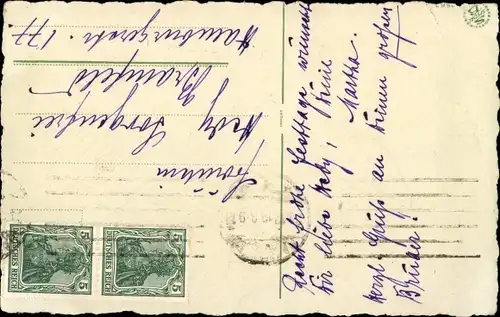 Recht frohe Festtage wünscht
Dir liebe Hedy, Deine
Martha.
Herzl. Gruß an Deinen großen
Bruder!
Fräulein
Hedy Sorgenfrei
Bramfeld
Hamburgerstr. 177
5
DEUTSCHES REICH
5
DEUTSCHES REICH